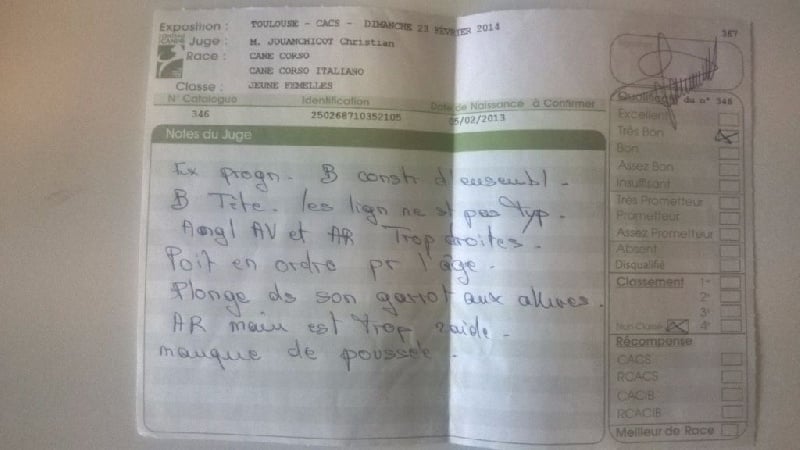 Exposition : TOULOUSE - CACS - DIMANCHE 23 FEVRIER 2014
Juge : M. JOUANCHICOT Christian
Race : CANE CORSO
CANE CORSO ITALIANO
Classe : JEUNE FEMELLES
N° Catalogue Identification Date de Naissance à Confirmer
346 250268710352105 05/02/2013
Notes du Juge
Ex progn. B constr d'ensembl.
B Tête. les lign ne st pas typ.
Angl AV et AR Trop droites.
Poit en ordre pr l'âge.
Plonge ds son garrot aux allures.
AR main est trop raide.
manque de poussée.
387
Qualificatif du n° 346
Excellent
Très Bon
Bon
Assez Bon
Insuffisant
Très Prometteur
Prometteur
Assez Prometteur
Absent
Disqualifié
Classement 1er
2e
3e
Non Classé 4e
Récompense
CACS
RCACS
CACIB
RCACIB
Meilleur de Race